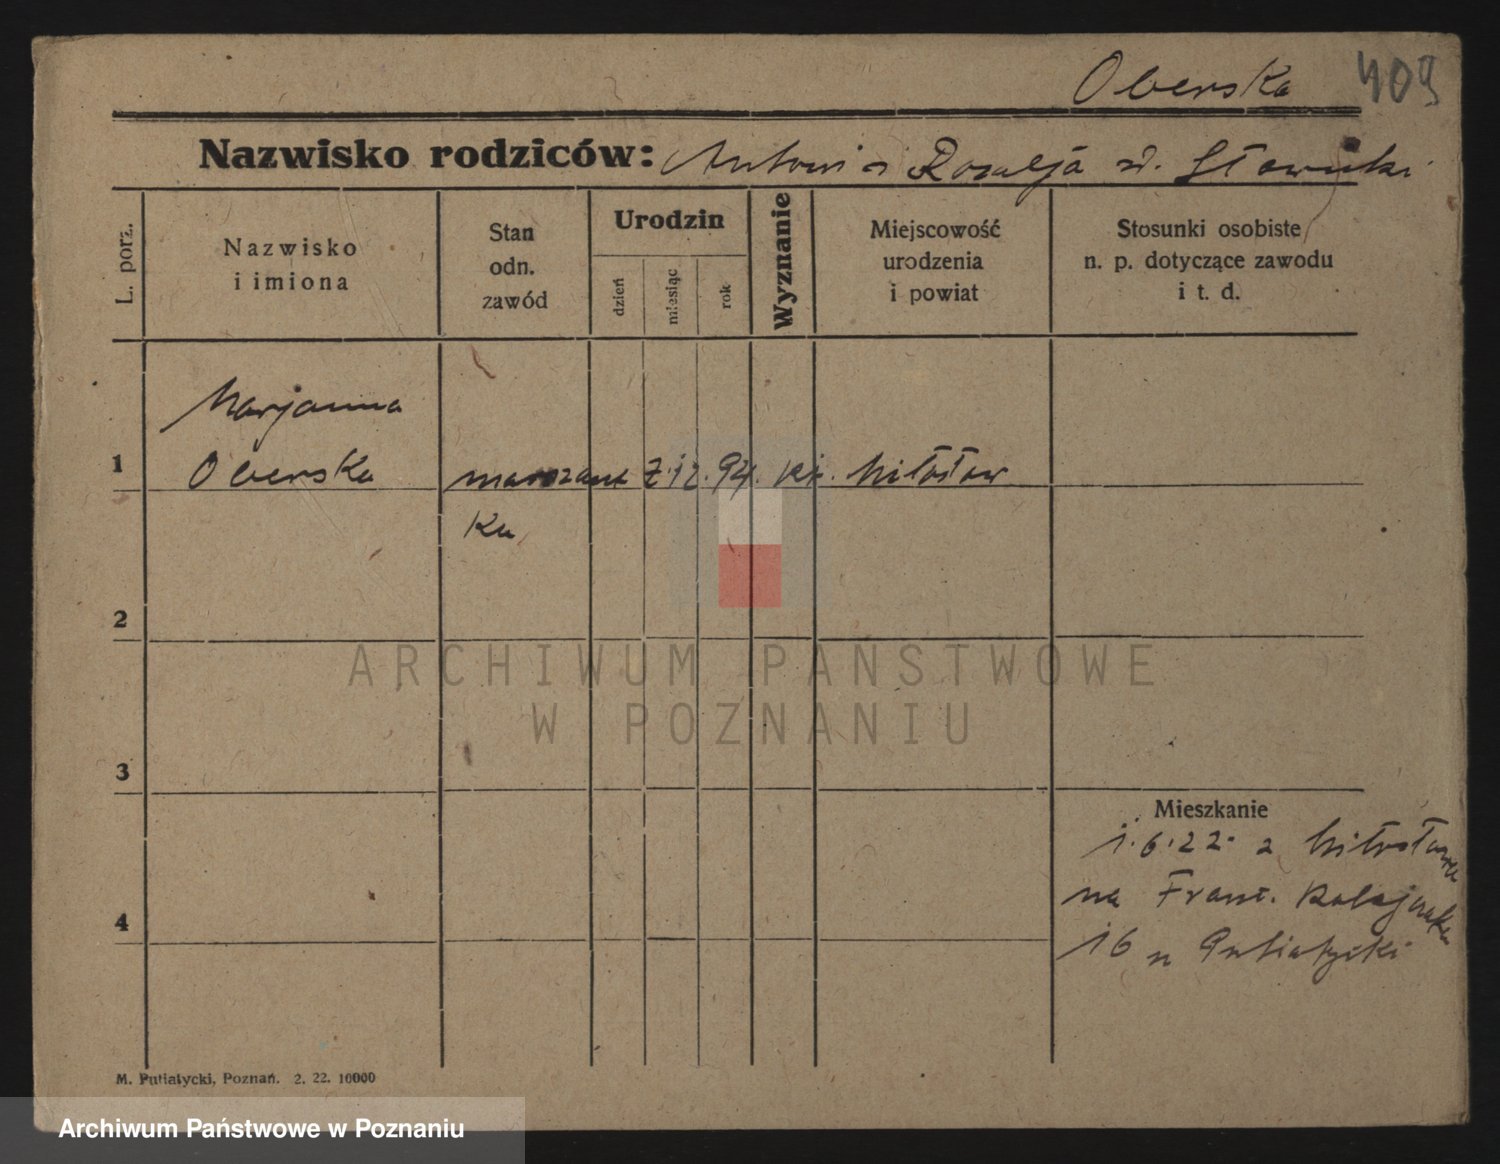 Oberska 409
Nazwisko rodziców: Antoni i Rozalja z d. Sławska
L. porz.
Nazwisko
i imiona
Stan
odn.
zawód
Urodzin
dzień
miesiąc
rok
Wyznanie
Miejscowość
urodzenia
i powiat
Stosunki osobiste
n. p. dotyczące zawodu
i t. d.
Marjanna
1 Oberska 2.12.94. kt. Miłosław
ka
2
3
Mieszkanie
1.6.22. z Miłosławia
na Franc. Ratajczaka
4
16 u Putiatycki
M. Putiatycki, Poznań. 2. 22. 10000
ARCHIWUM PAŃSTWOWE
W POZNANIU
Archiwum Państwowe w Poznaniu